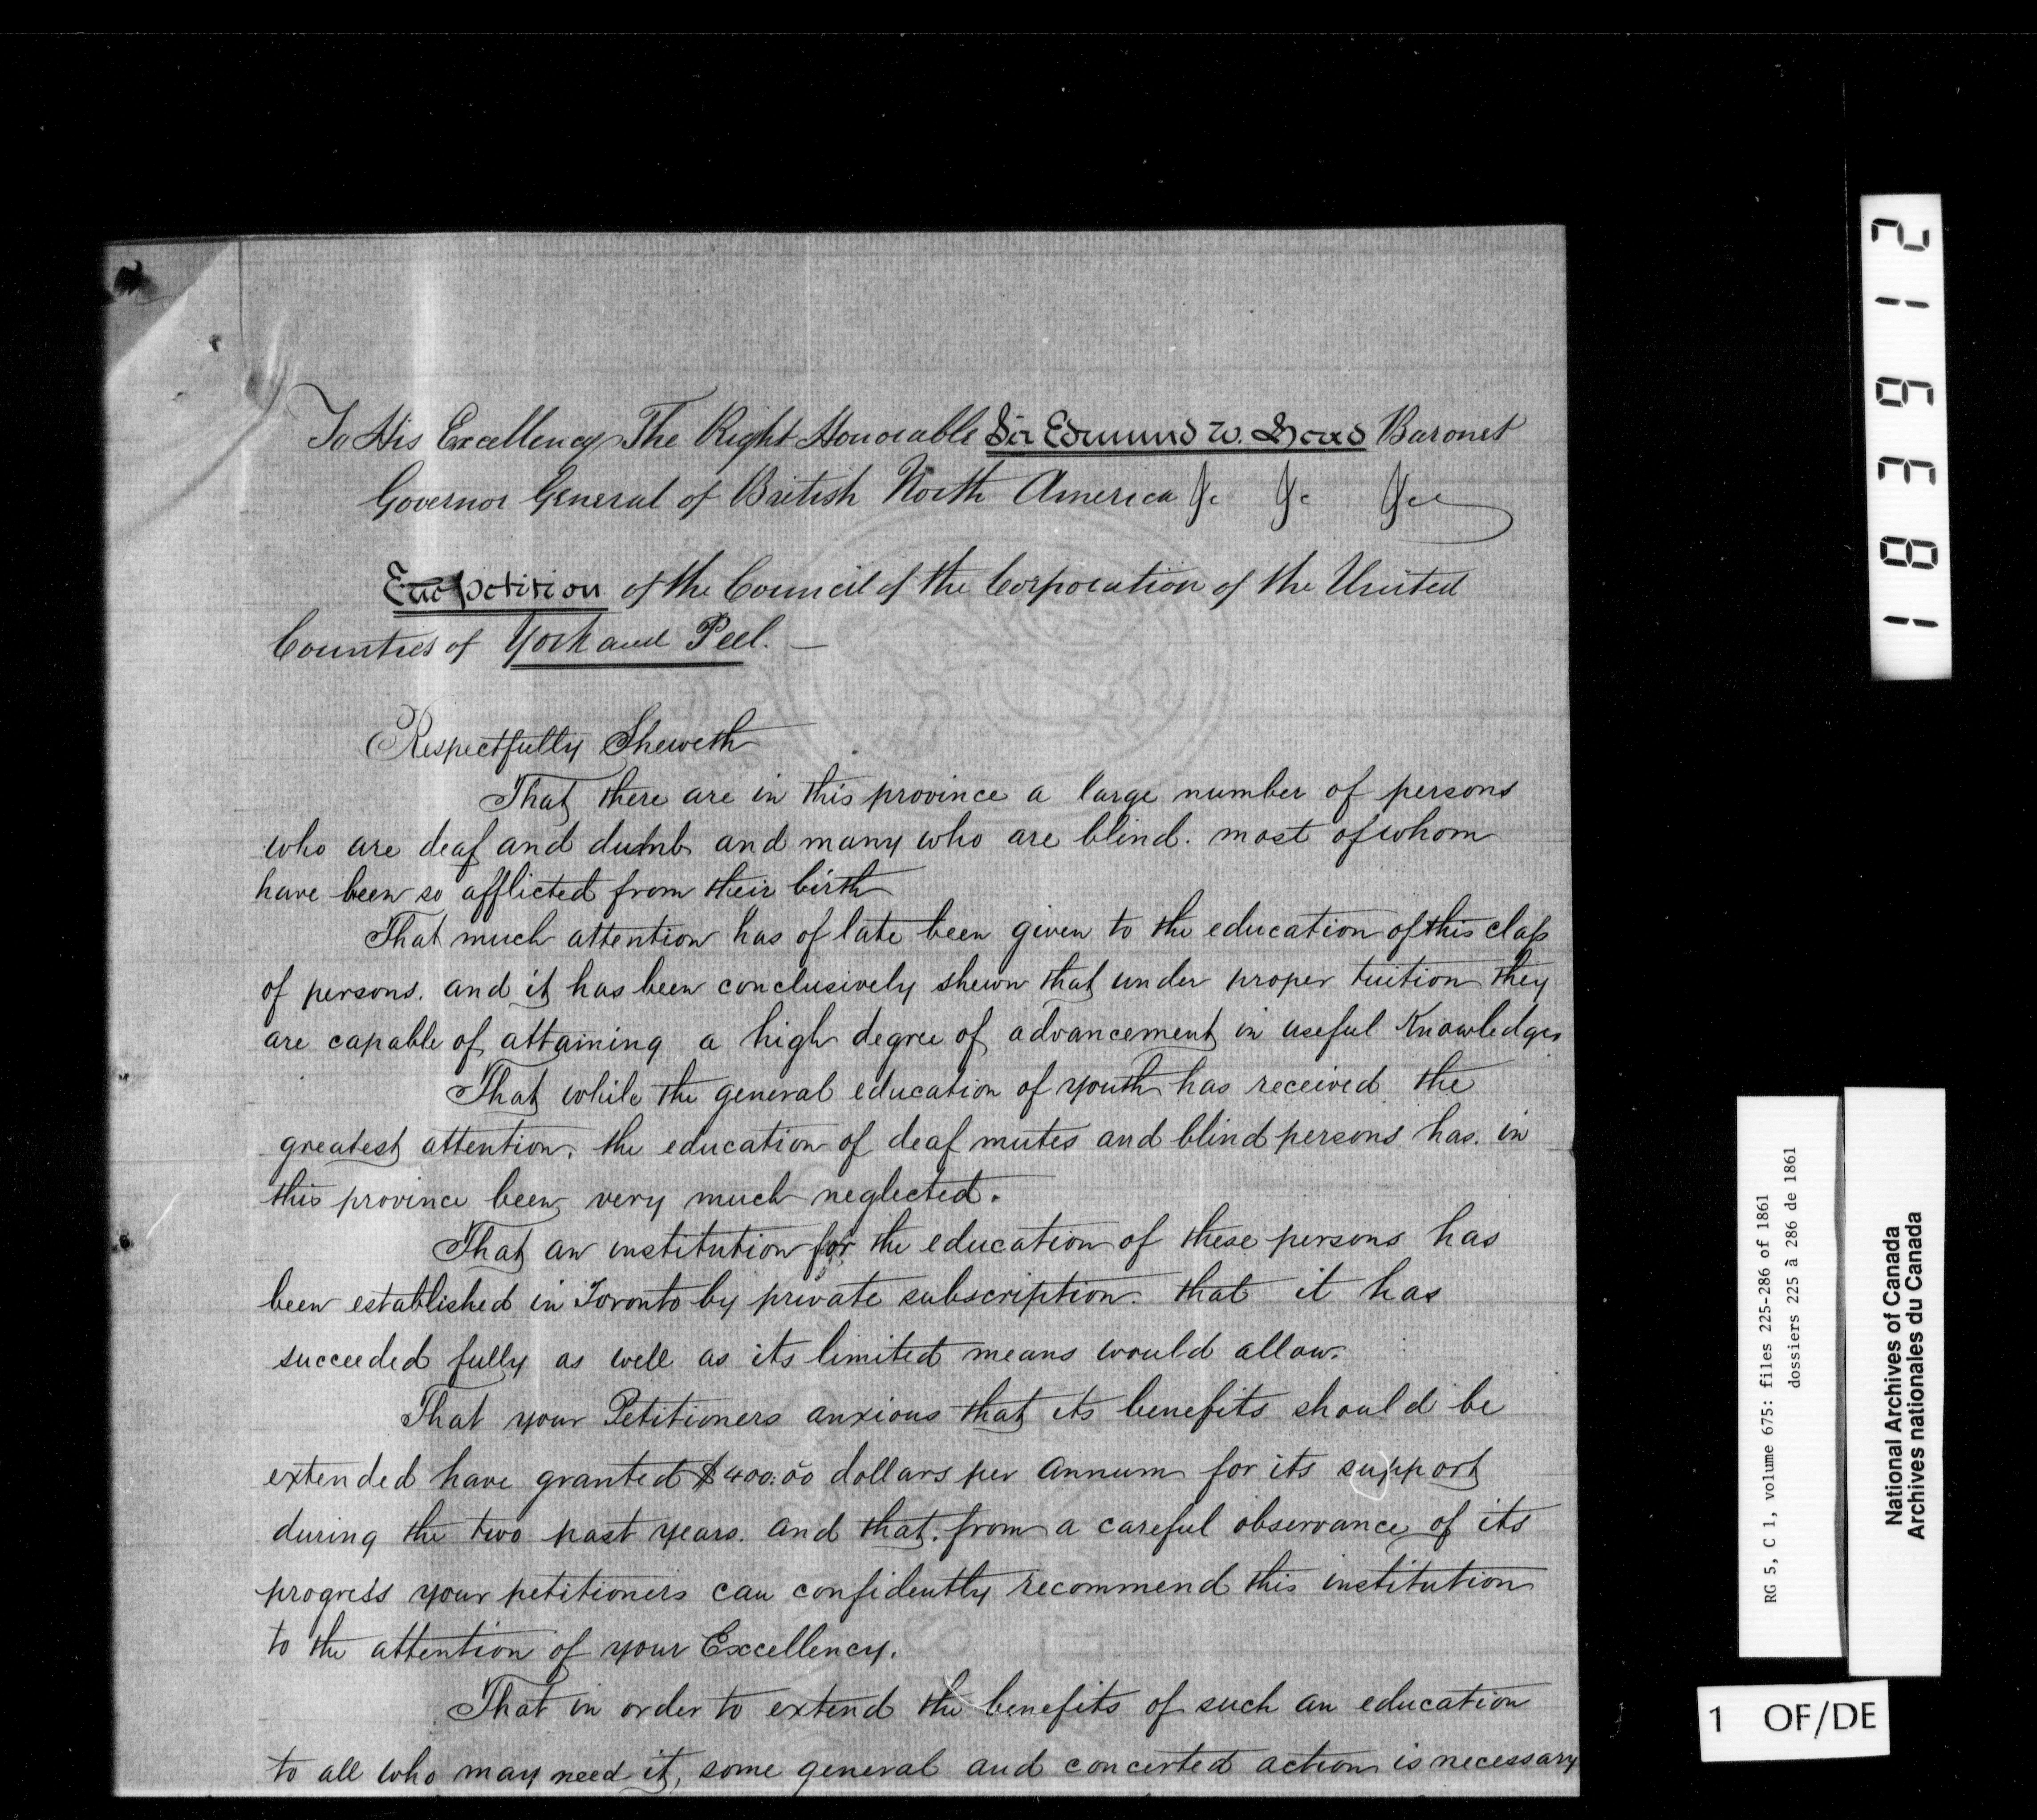 To His Excellency The Right Honorable Sir Edmund W. Head Baronet
Governor General of British North America &c &c &c
The petition of the Council of the Corporation of the United
Counties of York and Peel. —
Respectfully Sheweth
That there are in this province a large number of persons
who are deaf and dumb and many who are blind. most of whom
have been so afflicted from their birth
That much attention has of late been given to the education of this class
of persons. and it has been conclusively shewn that under proper tuition they
are capable of attaining a high degree of advancement in useful Knowledge
That while the general education of youth has received the
greatest attention, the education of deaf mutes and blind persons has. in
this province been very much neglected.
That an institution for the education of these persons has
been established in Toronto by private subscription. that it has
succeeded fully as well as its limited means would allow.
That your Petitioners anxious that its benefits should be
extended have granted $400.00 dollars per annum for its support
during the two past years. and that. from a careful observance of its
progress your petitioners can confidently recommend this institution
to the attention of your Excellency.
That in order to extend the benefits of such an education
to all who may need it, some general and concerted action is necessary
183612
RG 5, C 1, volume 675: files 225-286 of 1861
dossiers 225 à 286 de 1861
National Archives of Canada
Archives nationales du Canada
1 OF/DE